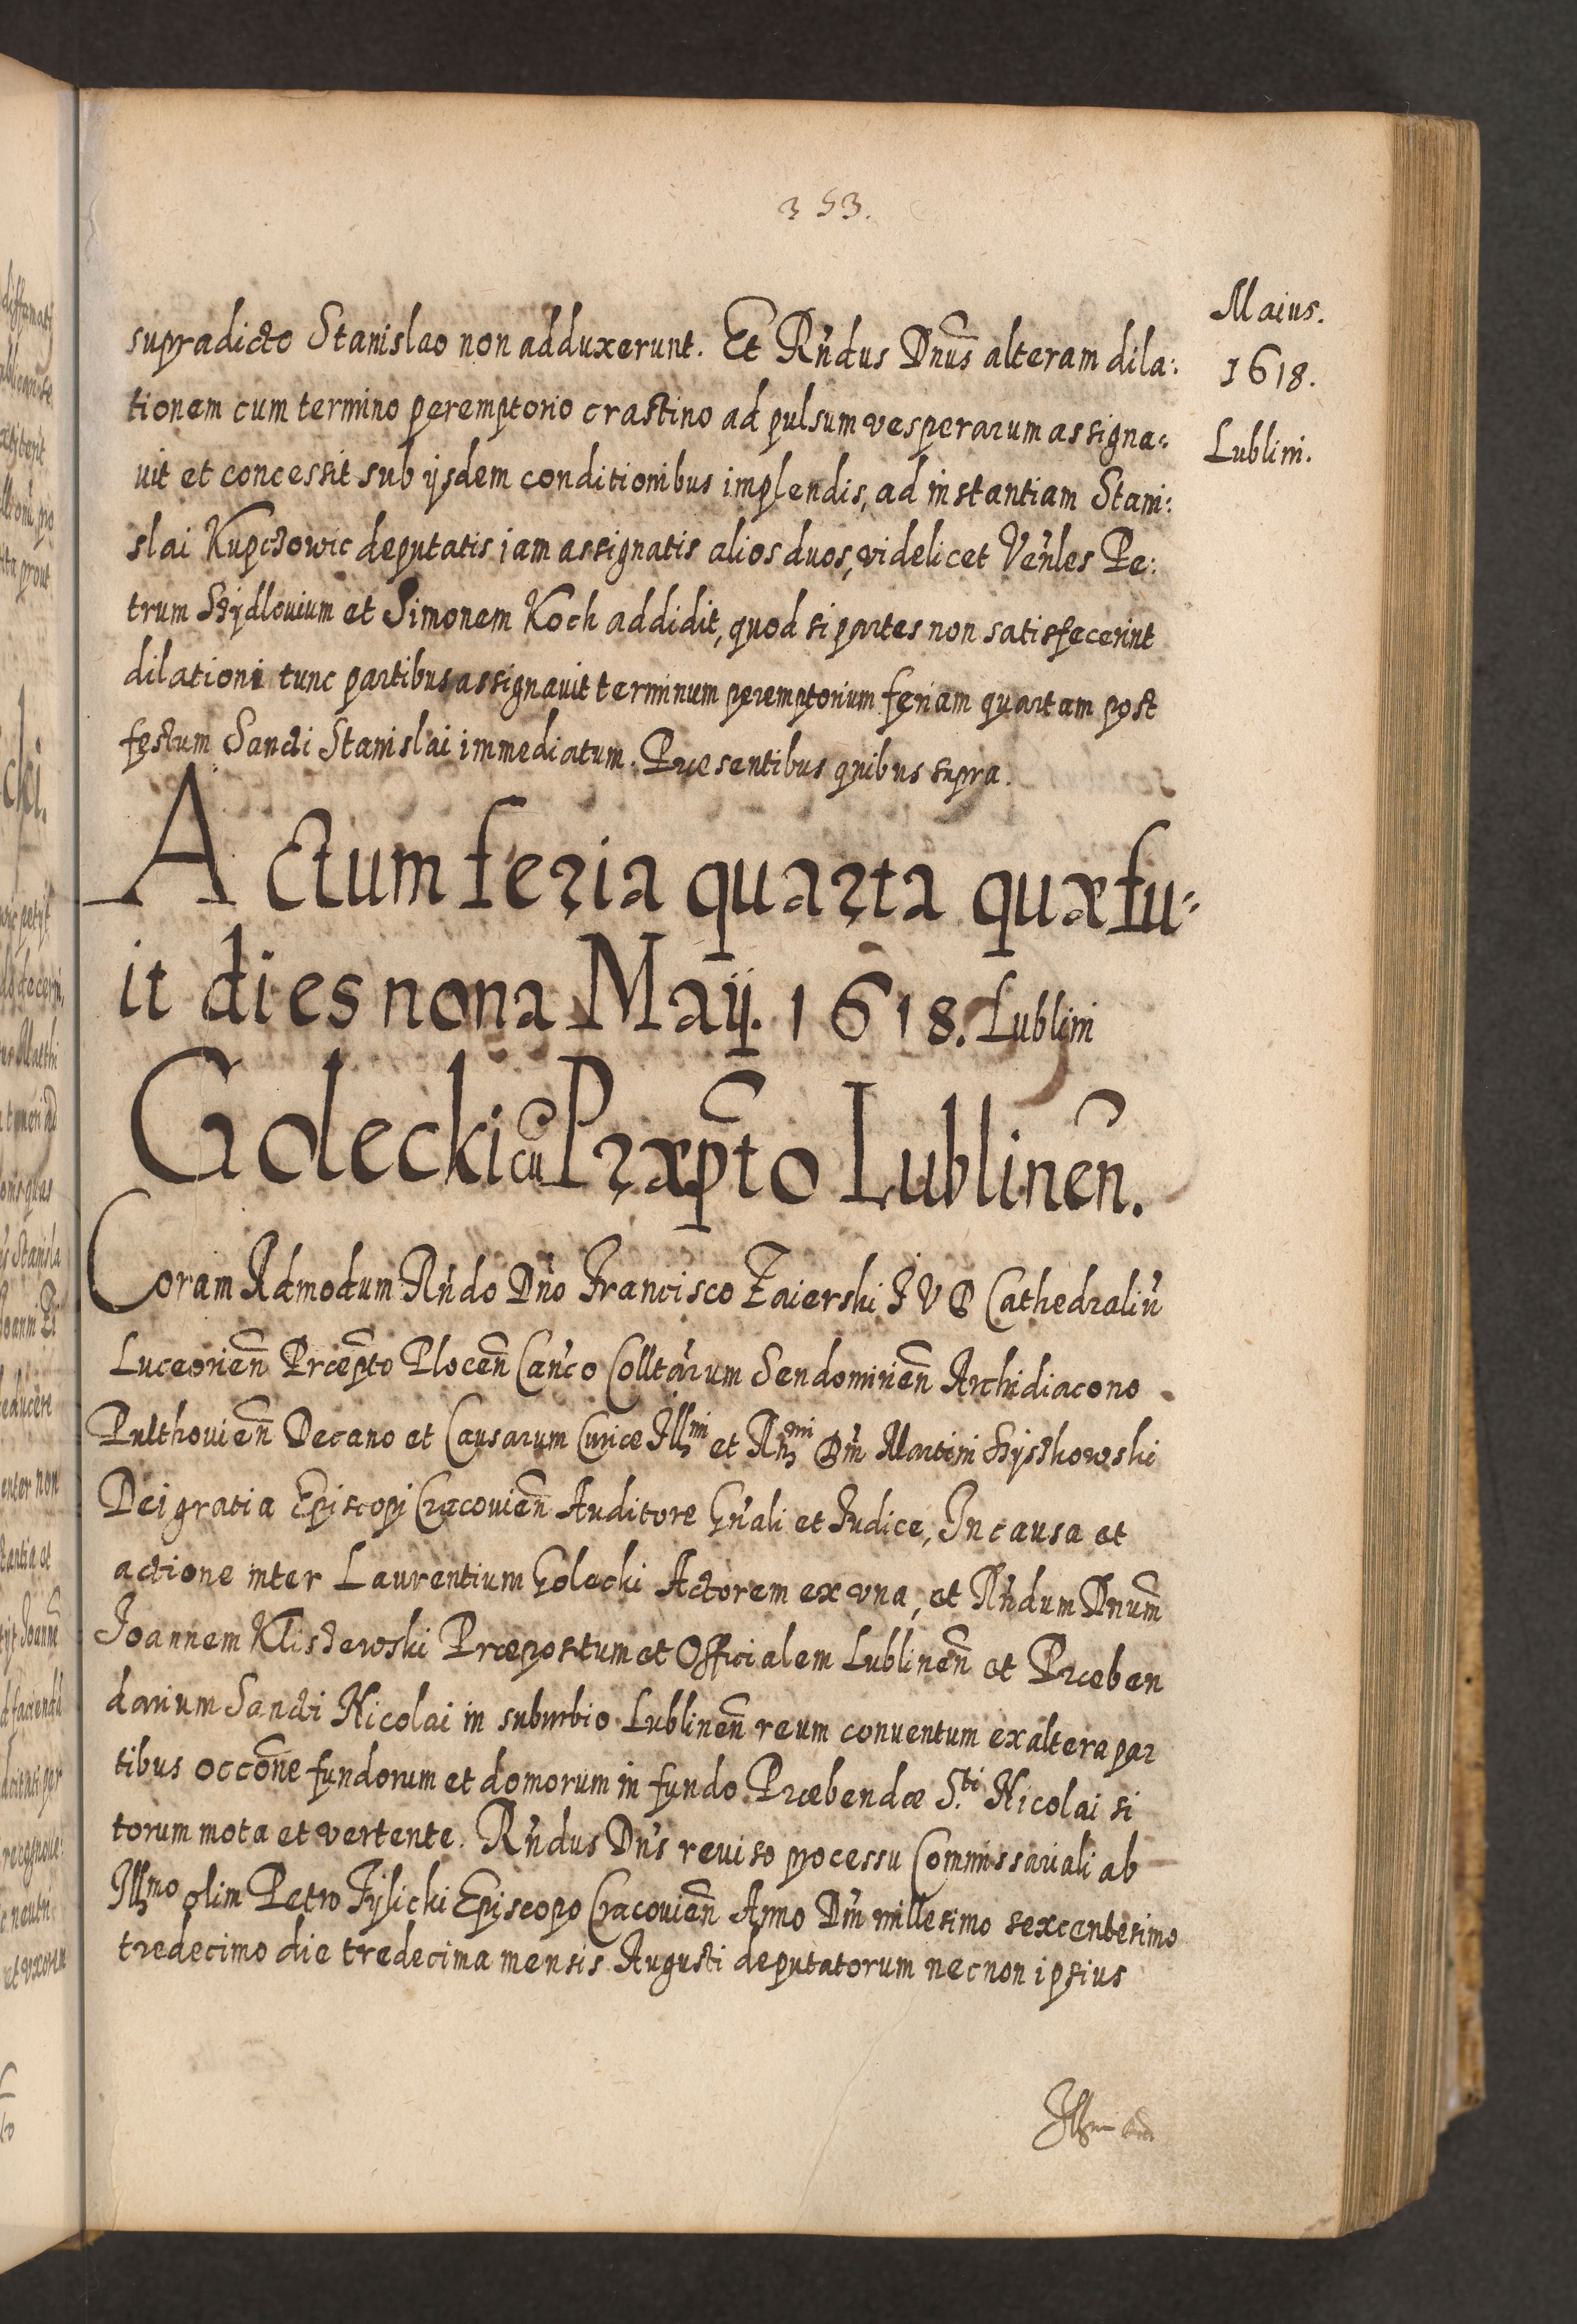 353.
Maius.
1618.
Lublini.
supradicto Stanislao non adduxerunt. Et Rndus Dnus alteram dila:
tionem cum termino peremptorio crastino ad pulsum vesperarum assigna:
uit et concessit sub ijsdem conditionibus implendis, ad instantiam Stani:
slai Kupczowic deputatis iam assignatis alios duos, videlicet Venles Pe:
trum Szydlouium et Simonem Koch addidit, quod si partes non satisfecerint
dilationi tunc partibus assignauit terminum peremptorium feriam quartam post
festum Sancti Stanislai immediatum. Præsentibus quibus supra.
Actum feria quarta quæ fu-
it dies nona Maij. 1618. Lublini
Golecki cũ Præpto Lublinen.
Coram Admodum Rndo Dno Francisco Zaierski I V D Cathedraliu
Luceorien Præpto Plocen Canco Colltarum Sendomirien Archidiacono
Pulthouien Decano et Causarum Curiæ Illmi et Rmi Dni Martini Szyszkowski
Dei gratia Episcopi Cracouien Auditore Gnali et Iudice, In causa et
actione inter Laurentium Golecki Actorem ex vna, et Rndum Dnum
Ioannem Kliszewski Præpositum et Officialem Lublinen et Præben
darium Sancti Nicolai in suburbio Lublinen reum conuentum ex altera par
tibus occone fundorum et domorum in fundo Præbendæ S.ti Nicolai si
torum mota et vertente. Rndus Dns reuiso processu Commissariali ab
Illmo olim Petro Tylicki Episcopo Cracouien Anno Dni millesimo sexcentesimo
tredecimo die tredecima mensis Augusti deputatorum necnon ipsius